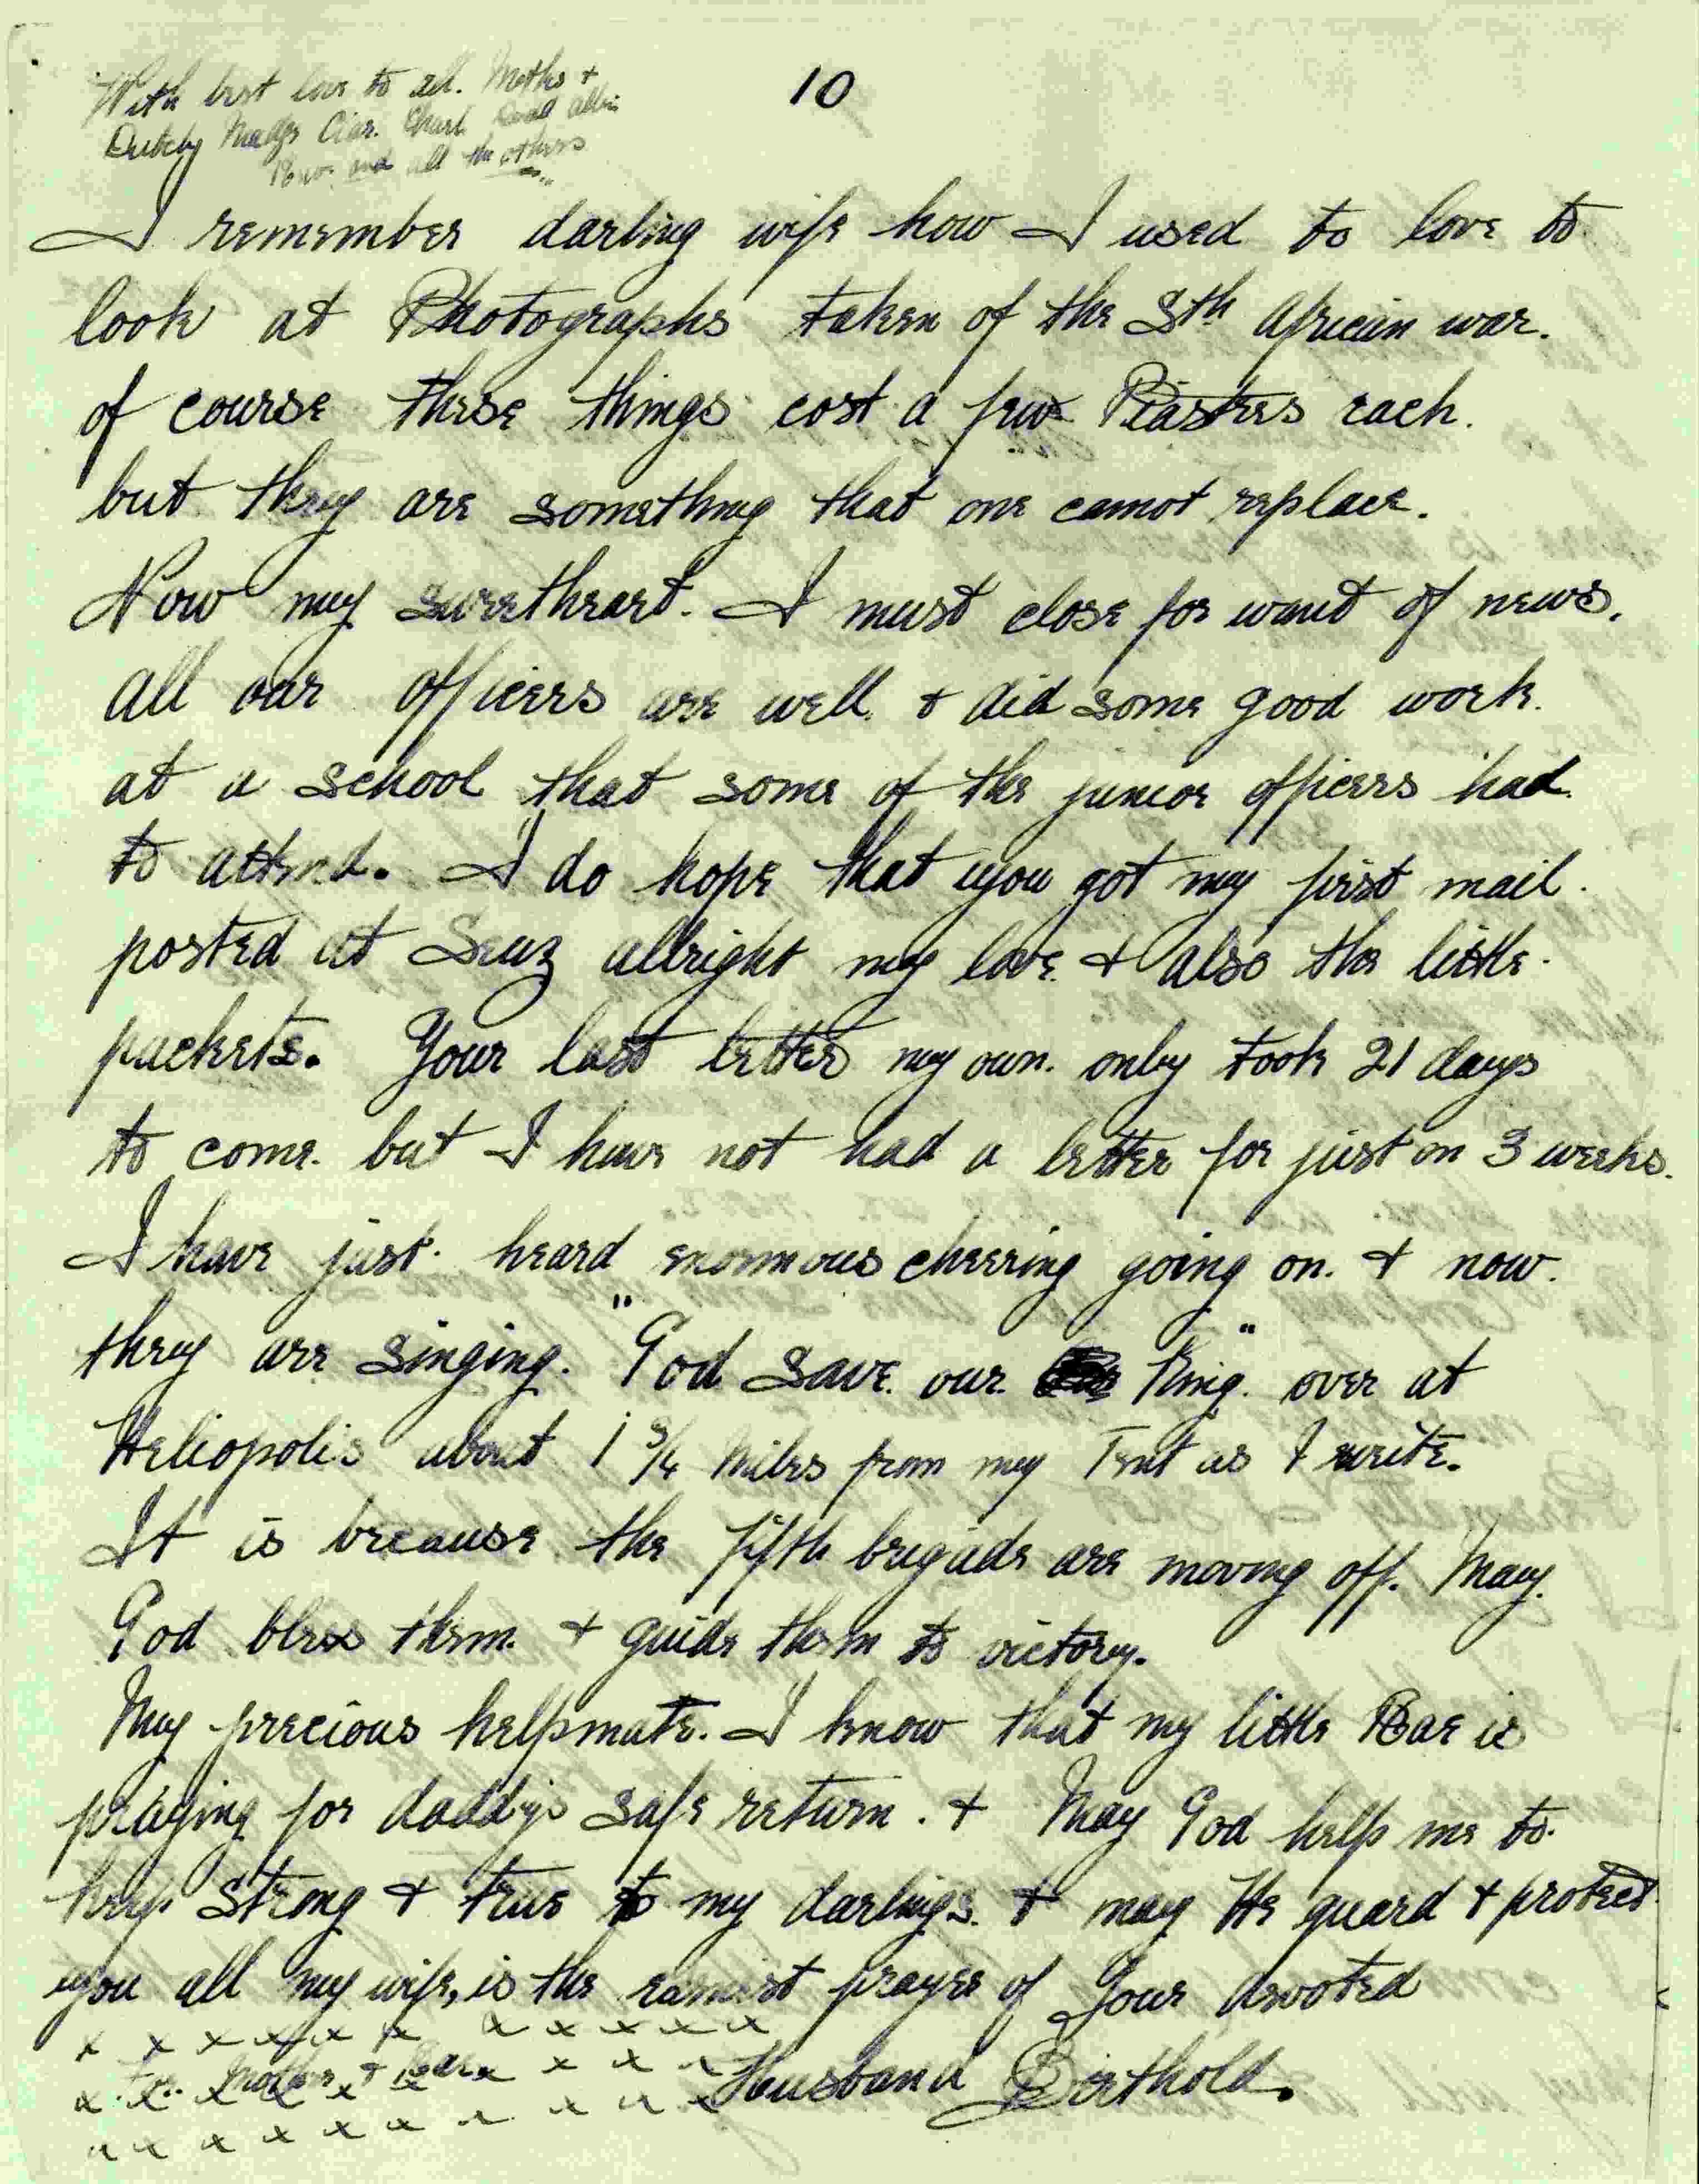 10
With best love to all. Mother +
Madge Clar. Charl
and all the others
I remember darling wife how I used to love to
look at Photographs taken of the Sth African war.
of course these things cost a few Piastres each.
but they are something that one cannot replace.
Now my sweetheart. I must close for want of news.
all our officers are well. + did some good work.
at a school that some of the junior officers had
to attend. I do hope that you got my first mail.
posted at Suez allright my love. + also the little.
packets. Your last letter my own. only took 21 days
to come. but I have not had a letter for just on 3 weeks.
I have just. heard enormous cheering going on. + now.
they are singing. "God save. our King." over at
Heliopolis about 1 3/4 miles from my Tent as I write.
It is because the fifth brigade are moving off. May.
God bless them. + guide them to victory.
My precious helpmate. I know that my little Bae is
praying for daddy's safe return. + May God help me to.
keep strong + true to my darlings. + may He guard + protect
you all my wife, is the earnest prayer of Your devoted
x x x x x x x x x x x
Husband Berthold.
For Mother + Bae x x x x
x x x x x x x x x x